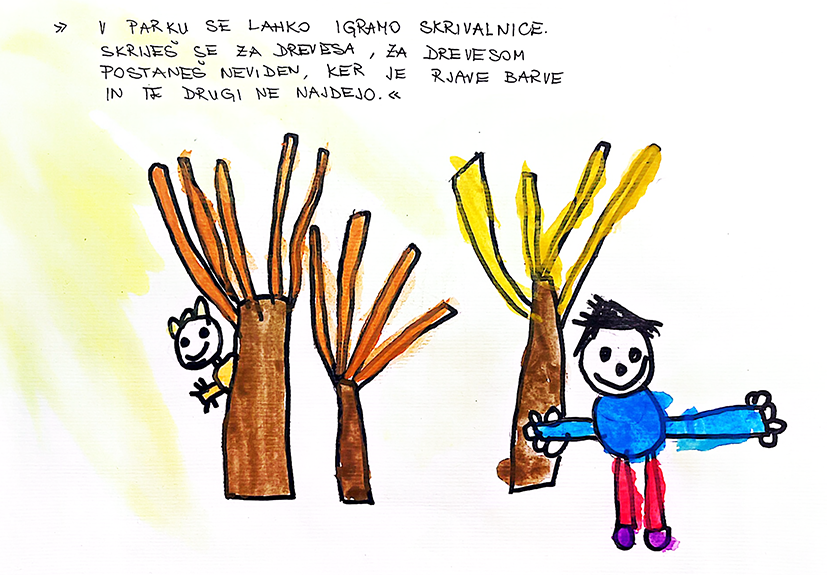 » V PARKU SE LAHKO IGRAMO SKRIVALNICE.
SKRIJEŠ SE ZA DREVESA, ZA DREVESOM
POSTANEŠ NEVIDEN, KER JE RJAVE BARVE
IN TE DRUGI NE NAJDEJO.«